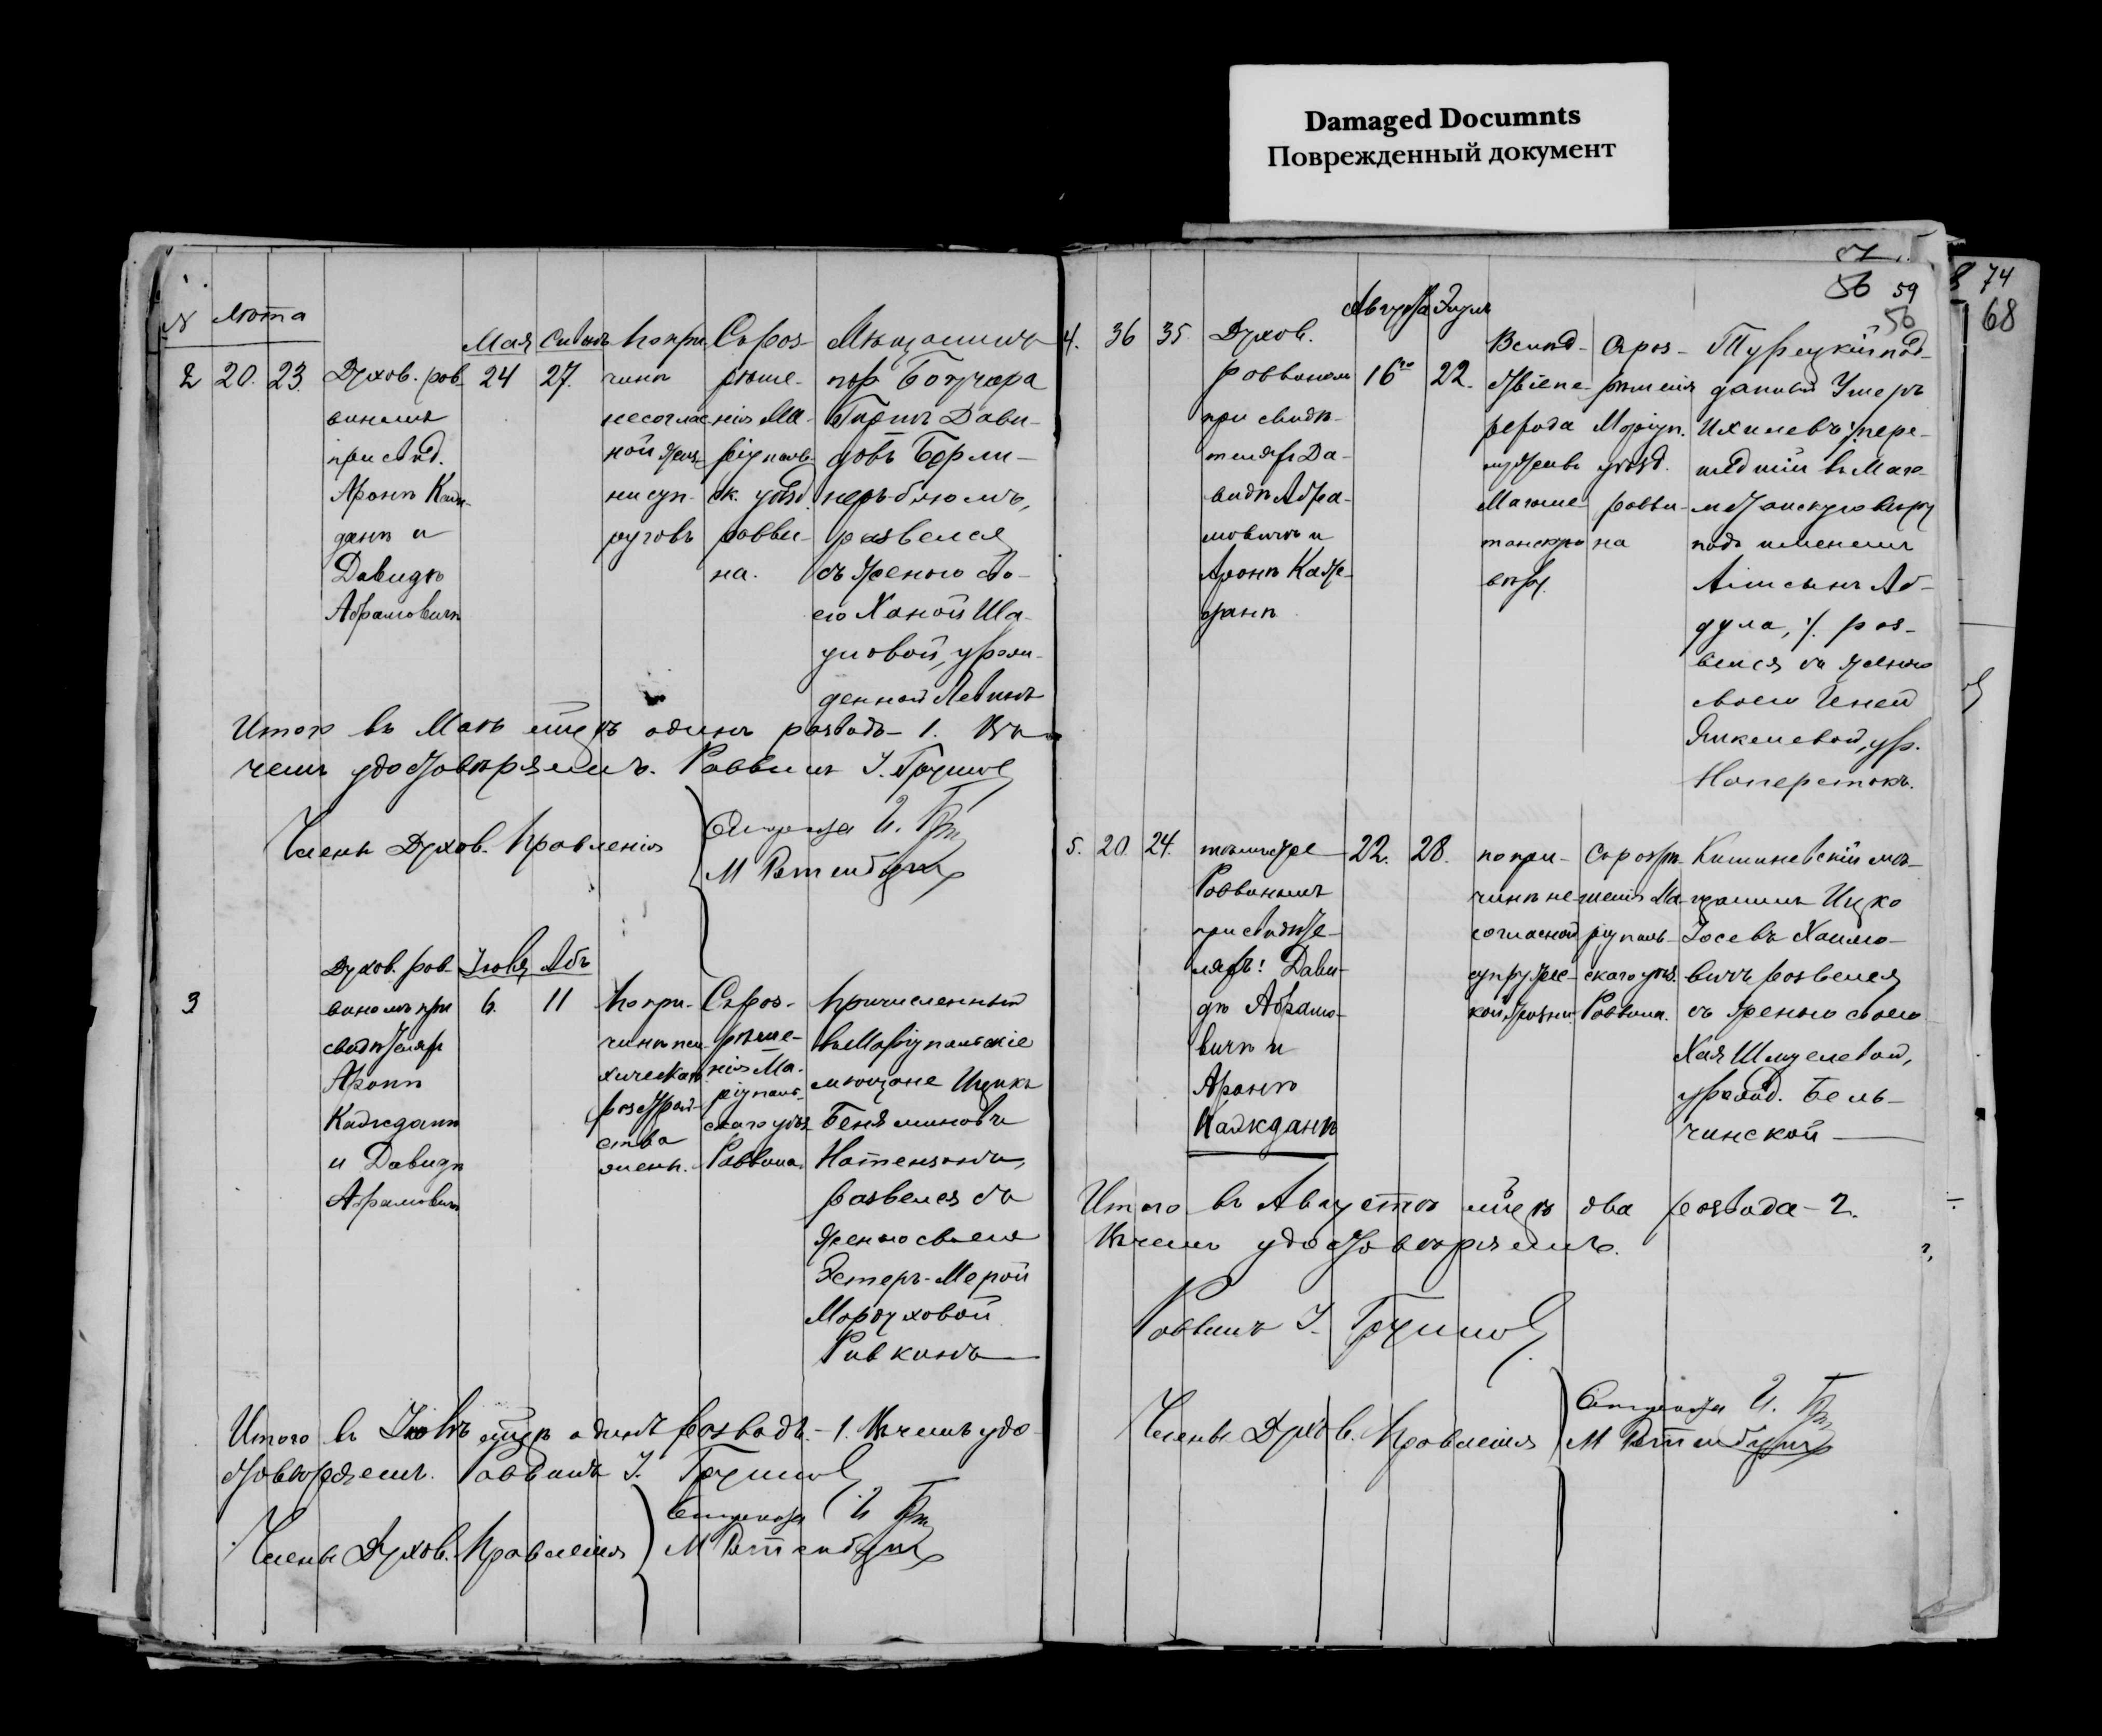 Damaged Documnts
Поврежденный документ
74
68
56 59
56
№ Лѣта
Мая Сивань
2 20. 23. Духов. рав-
виномъ
при свид.
Аронѣ Каж-
данѣ и
Давидѣ
Абрамовичѣ
24 27.
По при-
чинѣ
несоглас-
ной жиз-
ни суп-
руговъ
Съ раз-
рѣше-
нія Ма-
ріуполь-
ск. уѣзд.
равви-
на.
Мѣщанинъ
пос. Богучара
Давы-
довъ Берли-
неръ-блюмъ,
развелся
съ женою сво-
ею Ханой Ша-
уловой, урож-
денной Левинъ
Итого въ Маѣ м-цѣ одинъ разводъ – 1. Въ
чемъ удостовѣряемъ. Раввинъ І.
Члены Духов. Правленія
Староста И.
М
Іюля Абъ
3
Духов. рав-
виномъ при
свидѣтеляхъ
Аронѣ
Кажданѣ
и Давидѣ
Абрамовичѣ
6. 11
По при-
чинѣ пси-
хическаго
разстрой-
ства
жены.
Съ раз-
рѣше-
нія Ма-
ріуполь-
скаго уѣз.
Раввина.
Причисленный
въ Маріупольскіе
мѣщане Ицикъ
Беняминовъ
Натензонъ,
развелся съ
женою своею
Эстеръ-Мерой
Мордуховой
Ривкинъ
Итого въ Іюлѣ м-цѣ одинъ разводъ – 1. Въ чемъ удо-
стовѣряемъ. Раввинъ І.
Члены Духов. Правленія
Староста И
М
Августа Элулъ
4. 36 35. Духов.
раввиномъ
при свидѣ-
теляхъ Да-
видѣ Абра-
мовичѣ и
Аронѣ Каж-
данѣ
16го 22.
Вслѣд-
ствіе пе-
рехода
мужа въ
Магоме-
танскую
вѣру.
Съ раз-
рѣшенія
Маріуп.
уѣзд.
равви-
на
Турецкій под-
данный Умеръ
Ихилевъ /пере-
шедшій въ Маго-
метанскую вѣру
подъ именемъ
Али сынъ Аб-
дула, / раз-
велся съ женою
своею Геней
Янкелевой, ур.
Наперстокъ.
5. 20. 24. тѣмъ же
Раввиномъ
при свидѣте-
ляхъ: Дави-
дѣ Абрамо-
вичѣ и
Аронѣ
Кажданѣ
22. 28.
по при-
чинѣ не-
согласной
супруже-
ской жизни
Съ разрѣ-
шенія Ма-
ріуполь-
скаго уѣз.
Раввина.
Кишиневскій мѣ-
щанинъ Ицко
Іосевъ Хаимо-
вичъ развелся
съ женою своею
Хая Шмулевой,
урожд. Бель-
чинской
Итого въ Августѣ м-цѣ два развода – 2.
Въ чемъ удостовѣряемъ.
Раввинъ І.
Члены Духов. Правленія
Староста И.
М